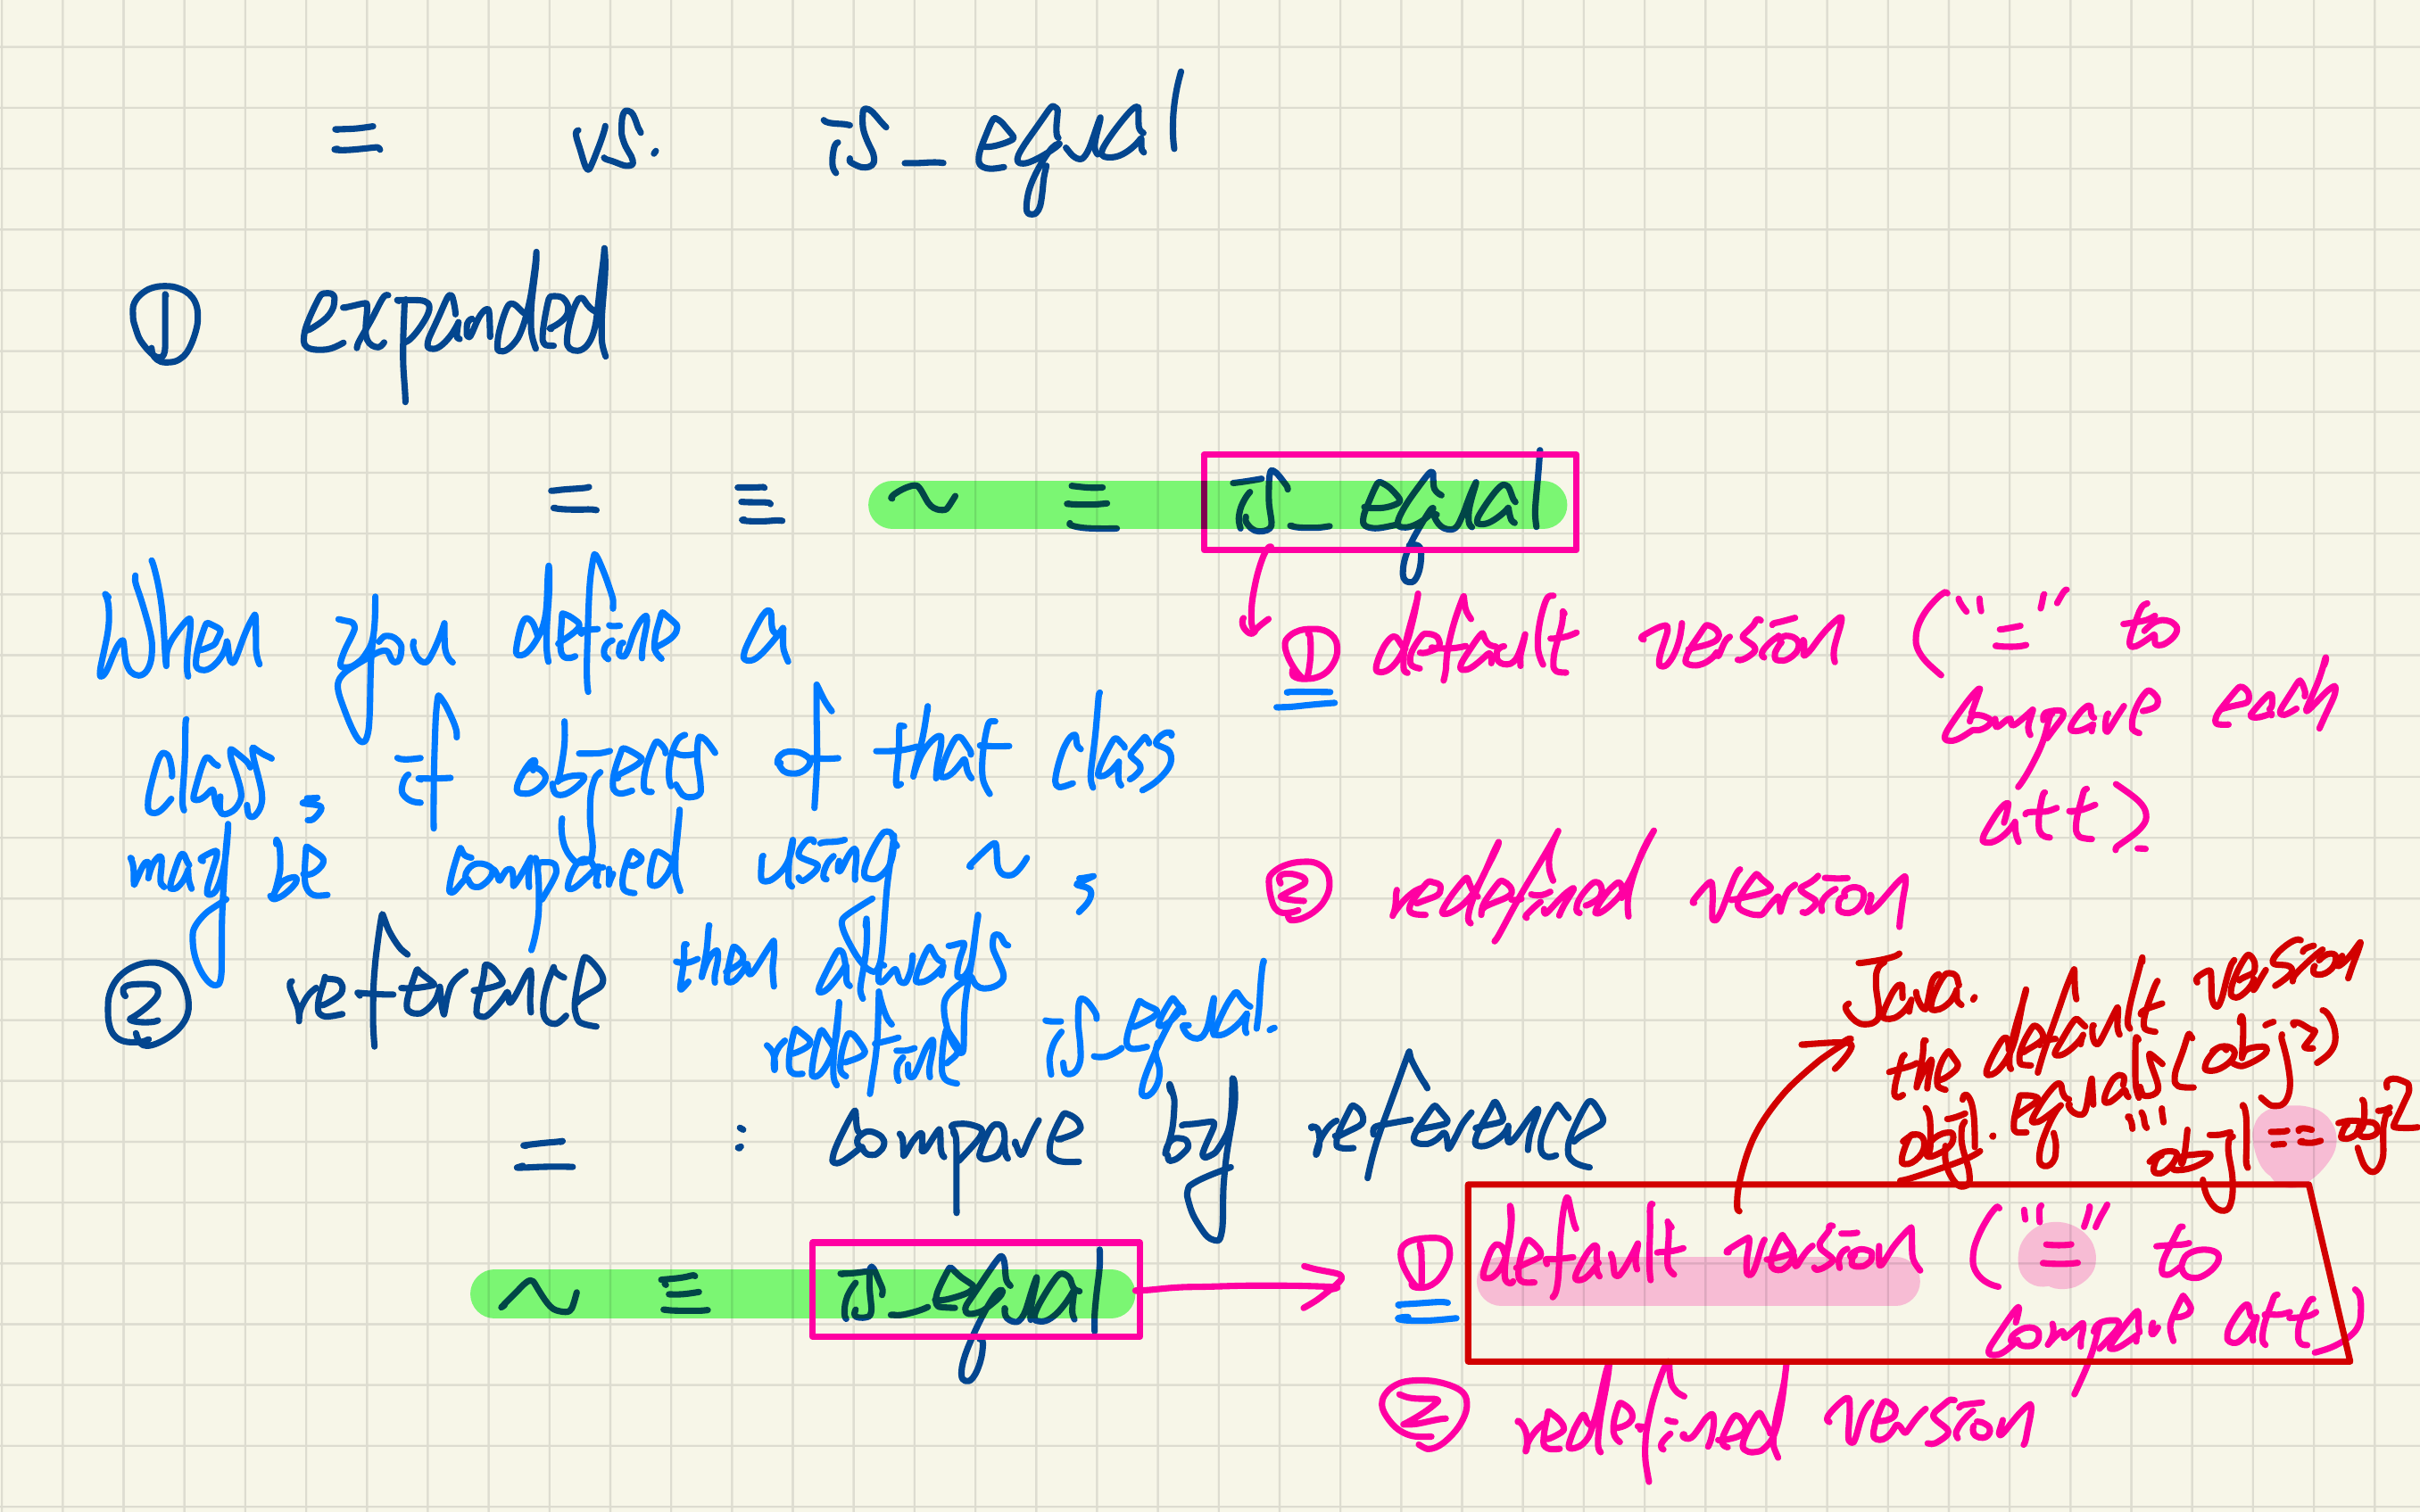 = vs. is_equal
① expanded
= ≡ ~ ≡ is_equal
① default version ("=" to
compare each
att)
② redefined version
When you define a
class, if objects of that class
may be compared using ~,
then always
redefine is_equal.
② reference
= : compare by reference
~ ≡ is_equal
① default version ("=" to
compare att)
② redefined version
Java.
the default version
obj1.equals(obj2)
"'
obj1 == obj2